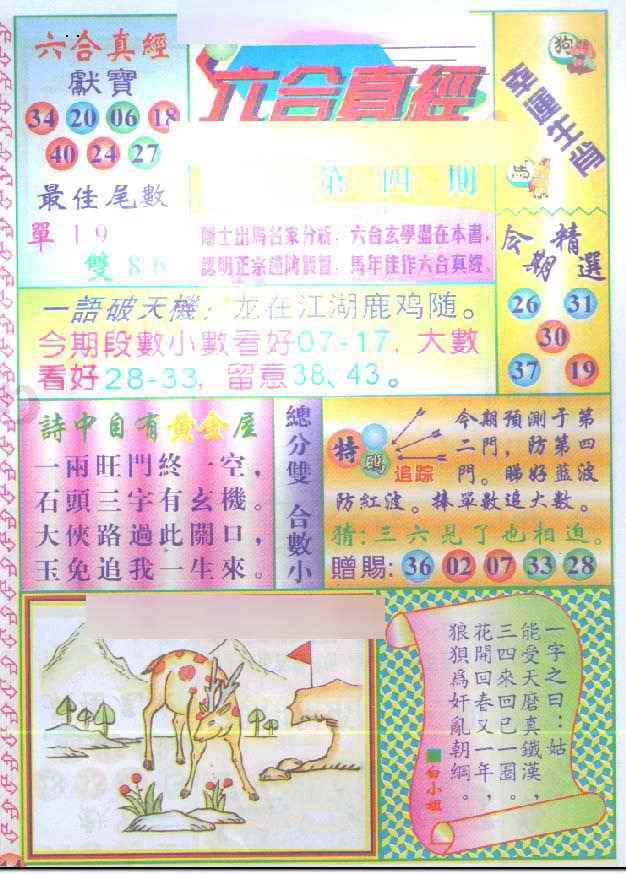 六合真經
獻寶
34 20 06 18
40 24 27
最佳尾數
單 1 9
雙 8 6
六合真經
第四期
認明正宗
馬年佳作六合真經。
六合玄學盡在本書,
幸運生肖
狗
馬
今期精選
26 31
30
37 19
一語破天機:龙在江湖鹿鸡随。
今期段數小數看好07-17,大數
看好28-33,留意38、43。
詩中自有黃金屋
一兩旺門終一空,
石頭三字有玄機。
大俠路過此開口,
玉兔追我一生來。
總分雙 合數小
特碼
追踪
今期預測于第
二門,防第四
門。睇好蓝波
防紅波。捧單數追大數。
猜:三六見了也相迫。
贈賜: 36 02 07 33 28
一字之曰:姑
能受天磨真鐵漢,
三四來回已一圈。
花開回春又一年,
狼狽爲奸亂朝綱。
白小姐